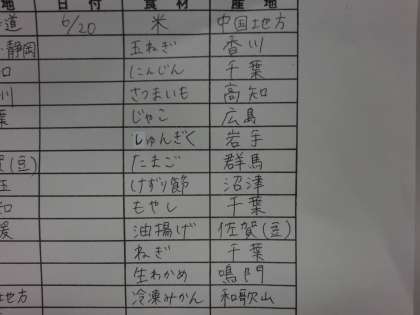 地 日付 食材 産地
道 6/20 米 中国地方
静岡 玉ねぎ 香川
にんじん 千葉
川 さつまいも 高知
葉 じゃこ 広島
しゅんぎく 岩手
賀(豆) たまご 群馬
玉 けずり節 沼津
知 もやし 千葉
媛 油揚げ 佐賀(豆)
ねぎ 千葉
生わかめ 鳴門
地方 冷凍みかん 和歌山